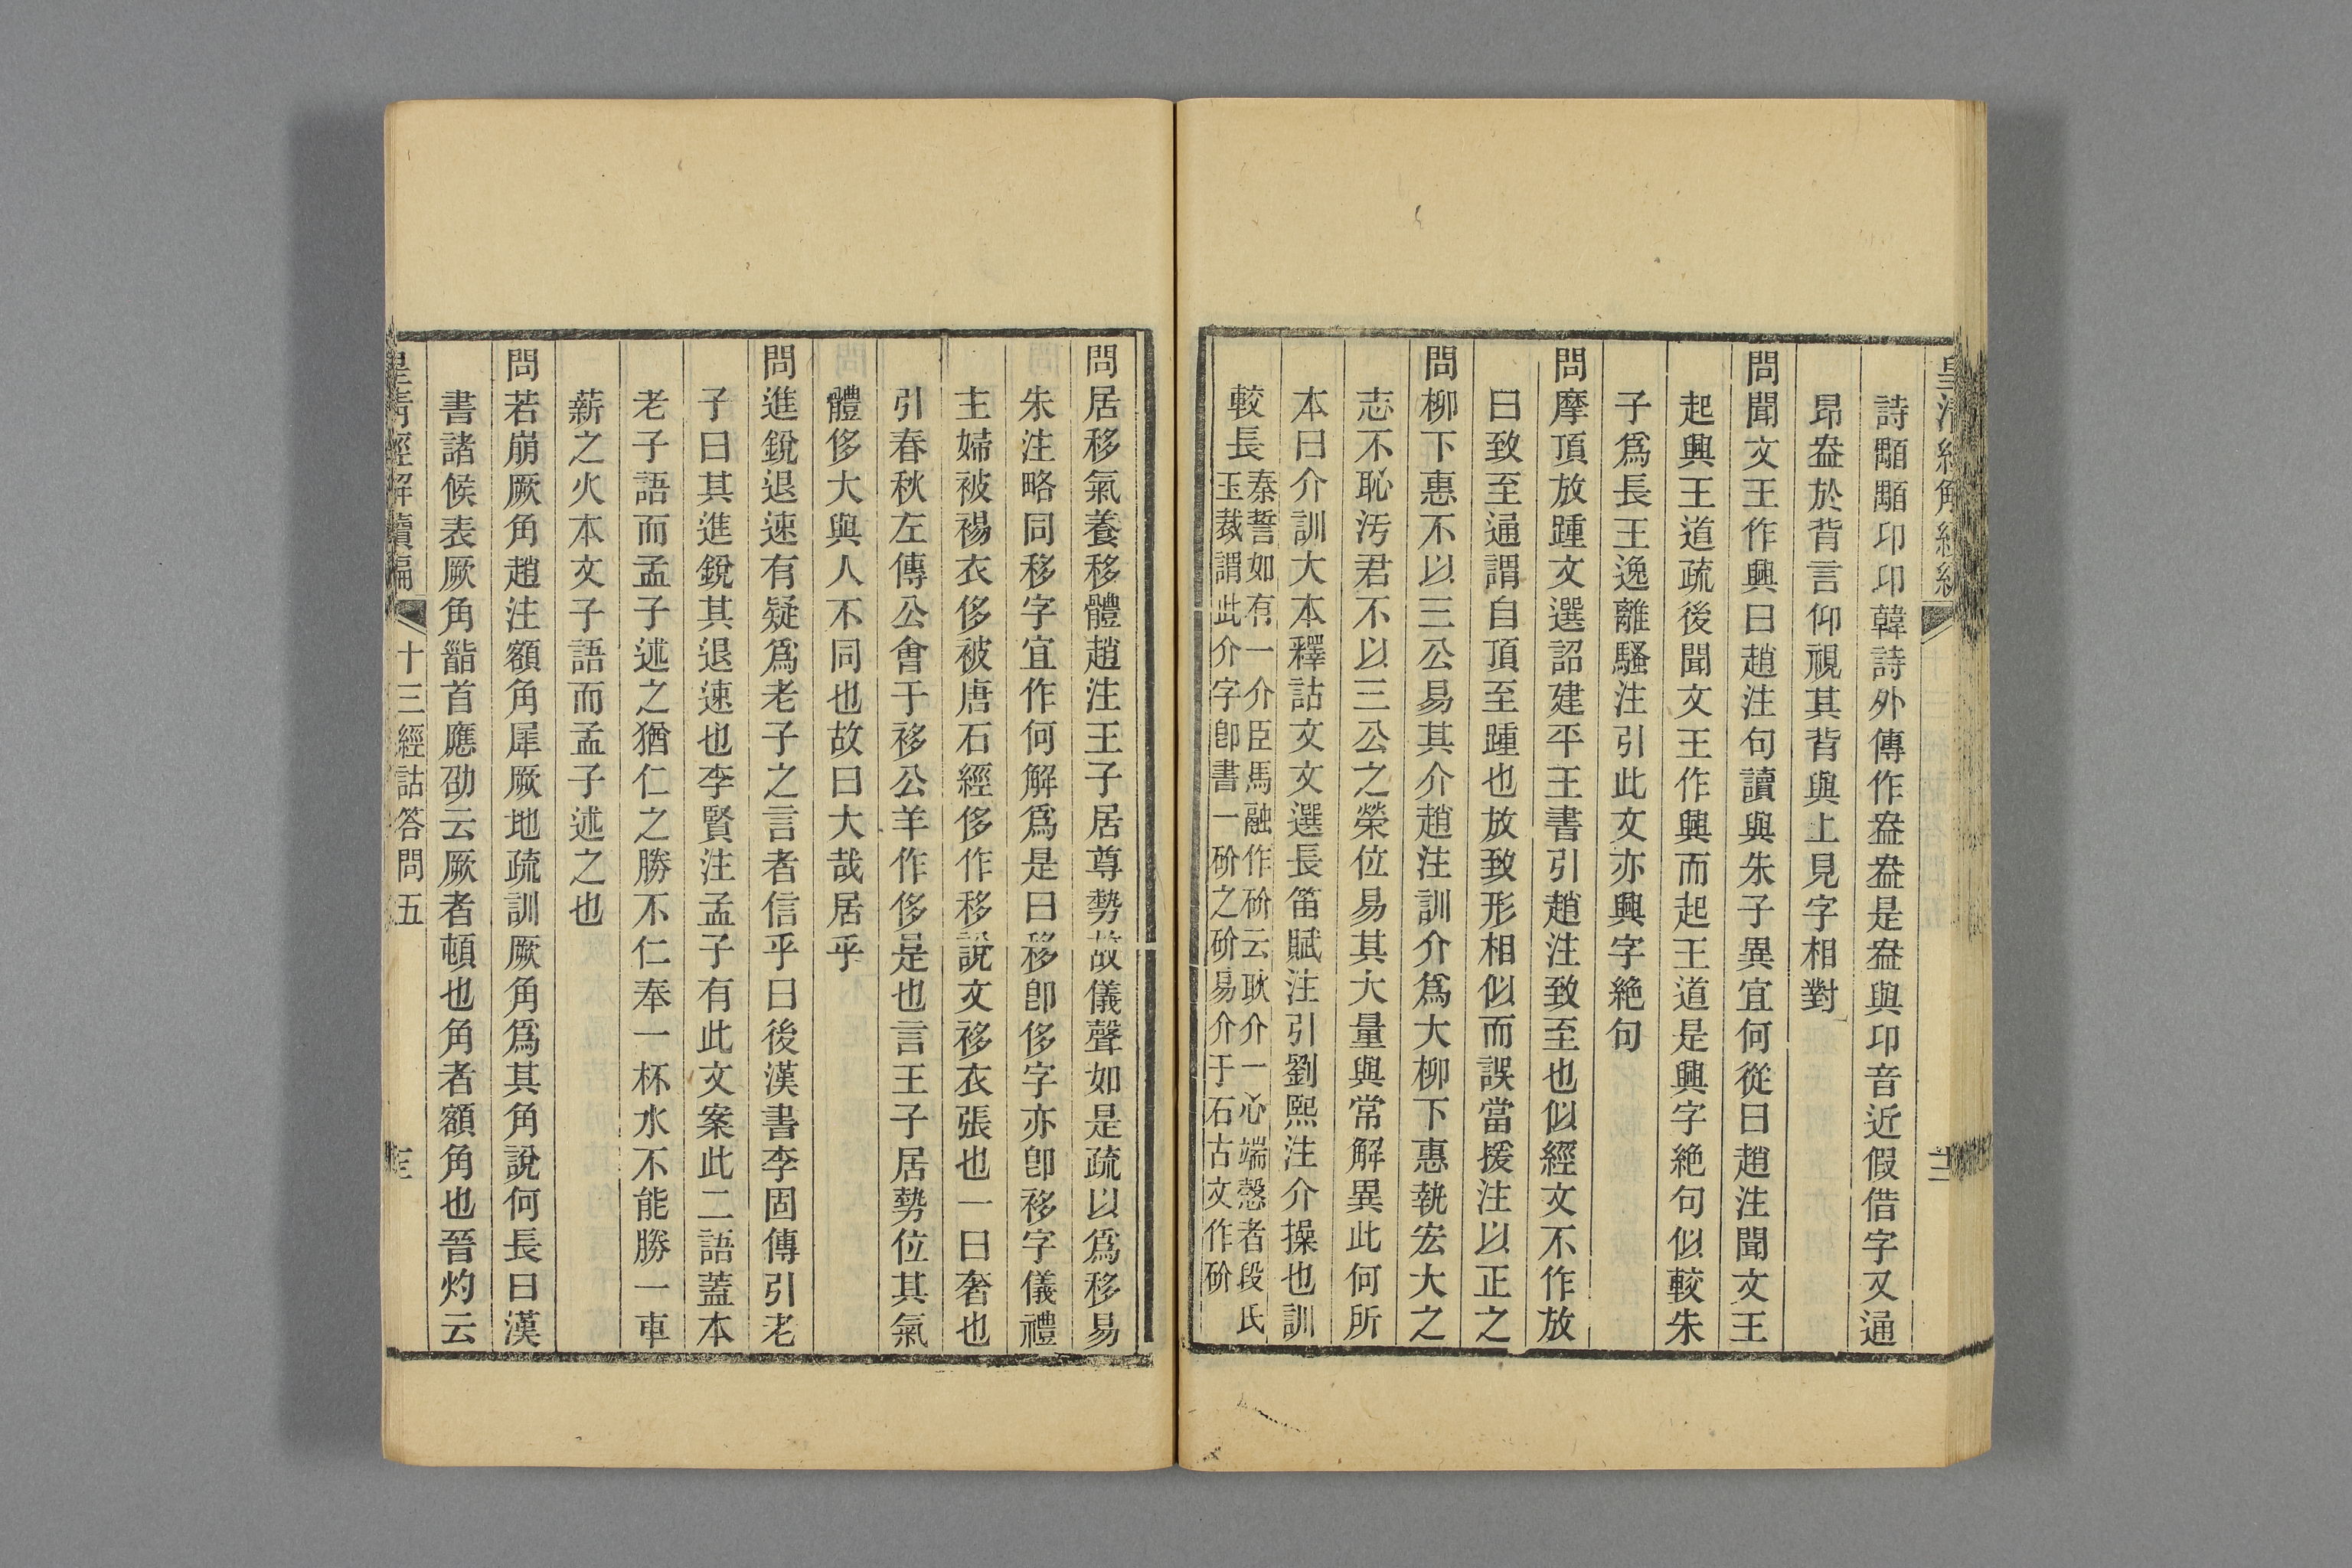 詩顒顒卬卬韓詩外傳作盎盎是盎與卬音近假借字又通
昂盎於背言仰視其背與上見字相對
問聞文王作興曰趙注句讀與朱子異宜何從曰趙注聞文王
起興王道疏後聞文王作興而起王道是興字絶句似較朱
子爲長王逸離騷注引此文亦興字絶句
問摩頂放踵文選詔建平王書引趙注致至也似經文不作放
曰致至通謂自頂至踵也放致形相似而誤當援注以正之
問柳下惠不以三公易其介趙注訓介爲大柳下惠執宏大之
志不恥汚君不以三公之榮位易其大量與常解異此何所
本曰介訓大本釋詁文文選長笛賦注引劉熙注介操也訓
較長秦誓如有一介臣馬融作砎云耿介一心端愨者段氏
玉裁謂此介字卽書一砎之砎易介于石古文作砎
問居移氣養移體趙注王子居尊勢故儀聲如是疏以爲移易
朱注略同移字宜作何解爲是曰移卽侈字亦卽栘字儀禮
主婦被裼衣侈被唐石經侈作移說文袳衣張也一曰奢也
引春秋左傳公會于袳公羊作侈是也言王子居勢位其氣
體侈大與人不同也故曰大哉居乎
問進銳退速有疑爲老子之言者信乎曰後漢書李固傳引老
子曰其進銳其退速也李賢注孟子有此文案此二語蓋本
老子語而孟子述之猶仁之勝不仁奉一杯水不能勝一車
薪之火本文子語而孟子述之也
問若崩厥角趙注額角犀厥地疏訓厥角爲其角說何長曰漢
書諸侯表厥角䭫首應劭云厥者頓也角者額角也晉灼云
皇清經解續編 十三經詁答問五